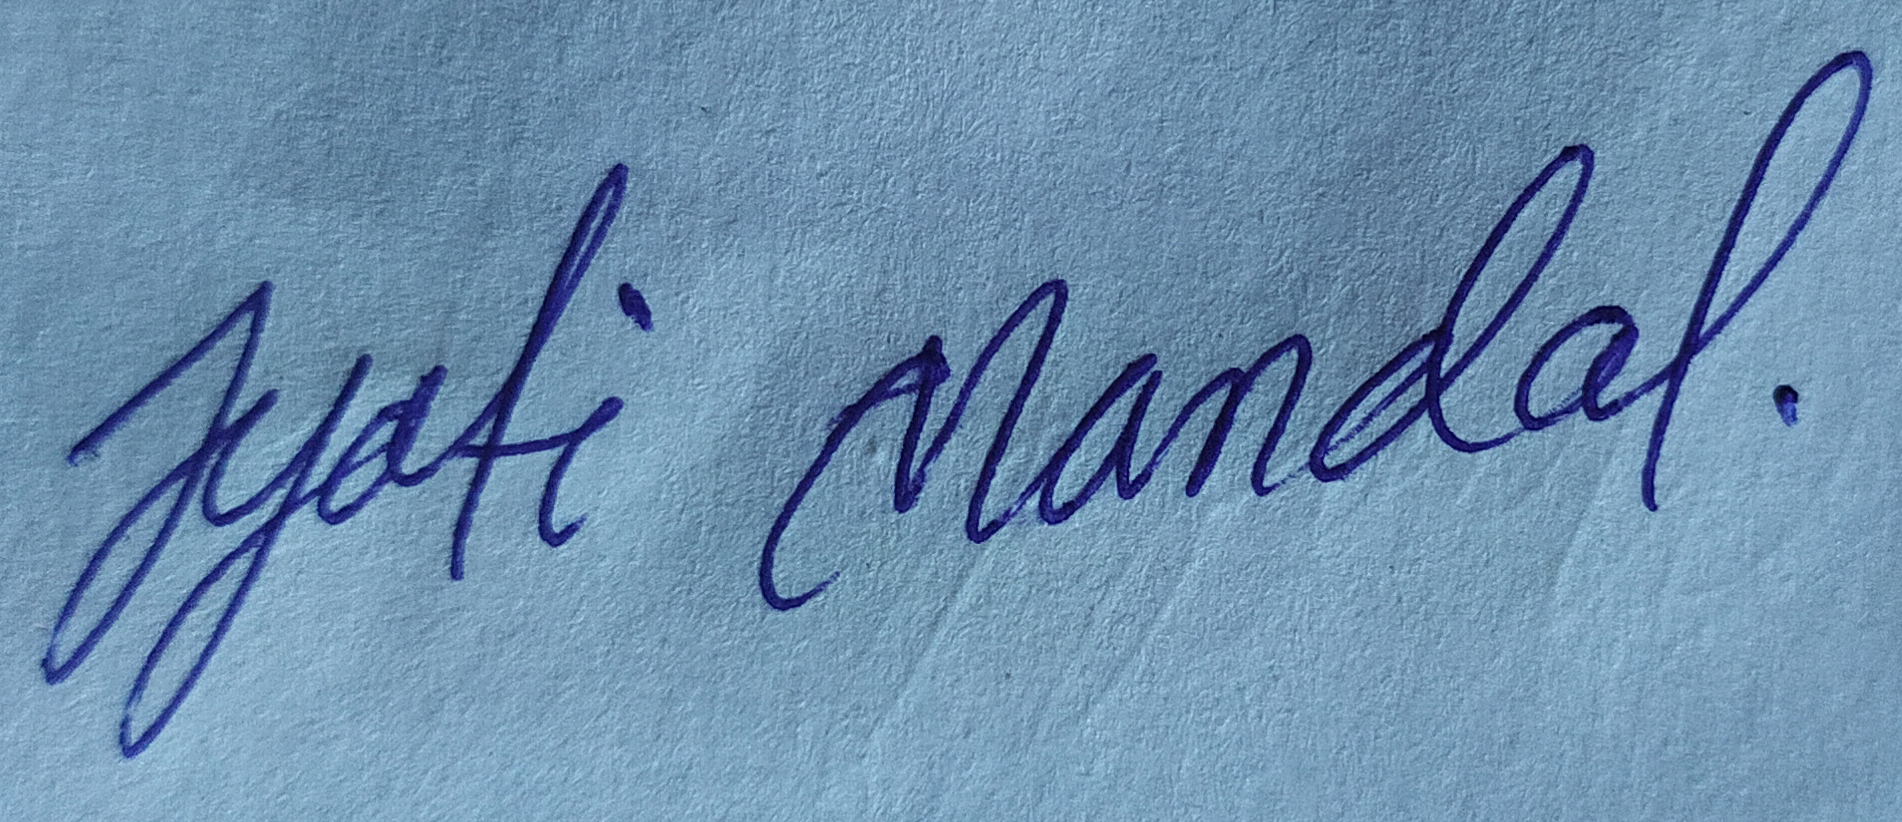 Jyoti Mandal.